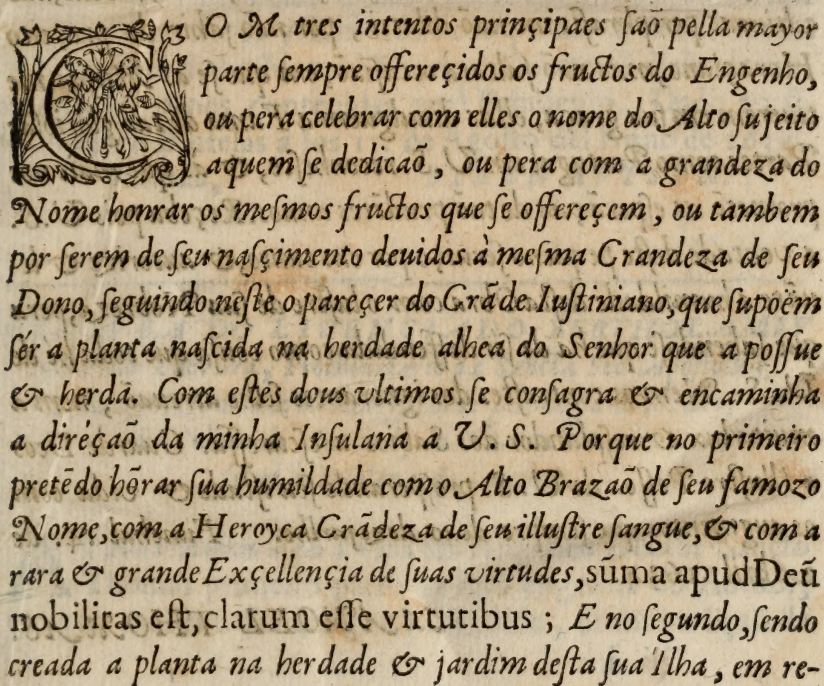 CO M tres intentos prinçipaes ſaõ pella mayor
parte ſempre offereçidos os fructos do Engenho,
ou pera celebrar com elles o nome do Alto ſujeito
aquem ſe dedicaõ, ou pera com a grandeza do
Nome honrar os meſmos fructos que ſe offereçem, ou tambem
por ſerem de ſeu naſçimento deuidos à meſma Grandeza de ſeu
Dono, ſeguindo neſte o pareçer do Grãde Iuſtiniano, que ſupoẽm
ſér a planta naſcida na herdade alhea do Senhor que a poſſue
& herda. Com eſtes dous vltimos ſe conſagra & encaminha
a direçaõ da minha Inſulana a V. S. Porque no primeiro
pretẽdo hõrar ſua humildade com o Alto Brazaõ de ſeu famozo
Nome, com a Heroyca Grãdeza de ſeu illuſtre ſangue, & com a
rara & grande Exçellençia de ſuas virtudes, sũma apud Deũ
nobilitas eſt, clarum eſſe virtutibus; E no ſegundo, ſendo
creada a planta na herdade & jardim deſta ſua Ilha, em re-